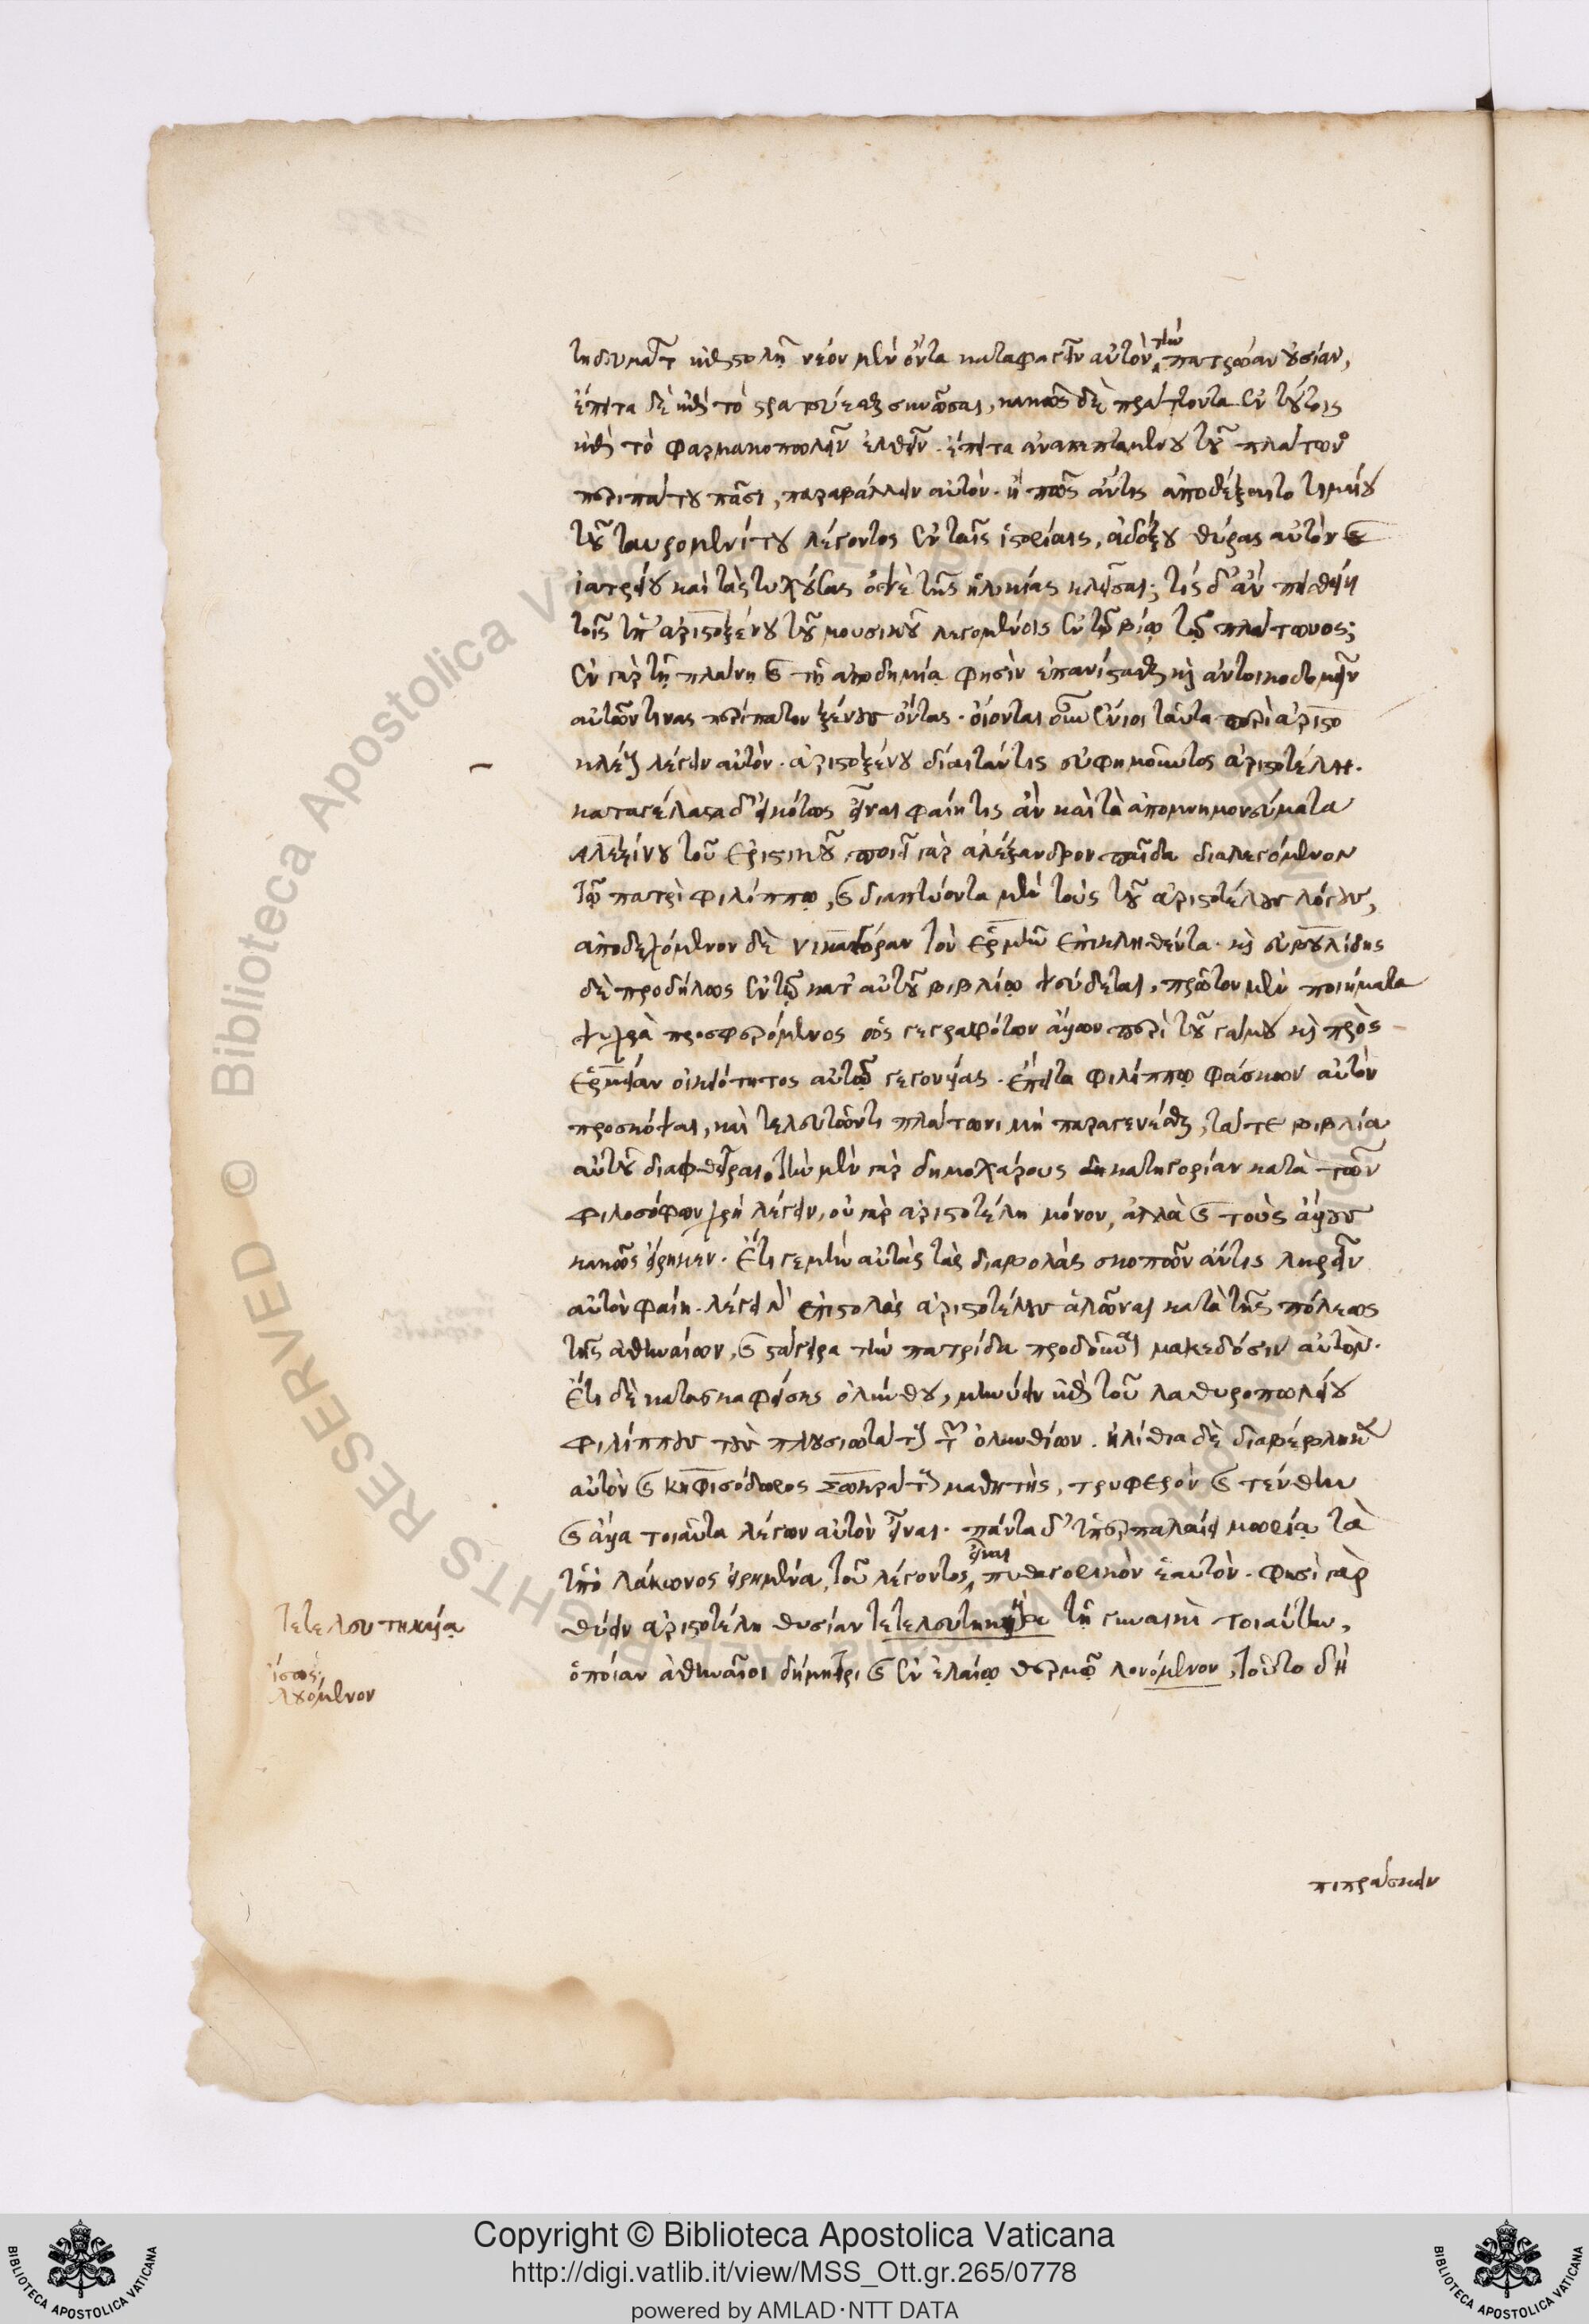 τηδευμάτων ἐπιστολῇ νέον μὲν ὄντα καταφαγεῖν αὐτὸν τὴν πατρῴαν οὐσίαν,
ἔπειτα δὲ ἐπὶ τὸ στρατεύεσθαι συνῶσαι, κακῶς δὲ πράττοντα ἐν τούτοις
ἐπὶ τὸ φαρμακοπωλεῖν ἐλθεῖν. ἔπειτα ἀναπεπταμένου τοῦ πλάτωνος
περιπάτου πᾶσι, παραβάλλειν αὐτόν. ἢ πῶς ἄν τις ἀποδέξαιτο τιμαίου
τοῦ ταυρομενίτου λέγοντος ἐν ταῖς ἱστορίαις, ἀδόξου θύρας αὐτὸν καὶ
ἰατρείου καὶ τὰς τυχούσας ὀψὲ τῆς ἡλικίας κλεῖσαι; τίς δ' ἂν πεισθείη
τοῖς ὑπ' ἀριστοξένου τοῦ μουσικοῦ λεγομένοις ἐν τῷ βίῳ τοῦ πλάτωνος;
ἐν γὰρ τῇ πλάνῃ καὶ τῇ ἀποδημίᾳ φησὶν ἐπανίστασθαι καὶ ἀντοικοδομεῖν
αὐτῶν τινας περίπατον ξένους ὄντας. οἴονται οὖν ἔνιοι ταῦτα περὶ ἀριστο
κλέους λέγειν αὐτόν. ἀριστοξένου διαπαντὸς εὐφημοῦντος ἀριστοτέλην.
καταγέλαστα δ' εἰκότως εἶναι φαίη τις ἂν καὶ τὰ ἀπομνημονεύματα
ἀλεξίνου τοῦ ἐριστικοῦ. ποιεῖ γὰρ ἀλέξανδρον παῖδα διαλεγόμενον
τῷ πατρὶ φιλίππῳ, καὶ διαπτύοντα μὲν τοὺς τοῦ ἀριστοτέλους λόγους,
ἀποδεχόμενον δὲ νικαγόραν τὸν ἑρμῆν ἐπικληθέντα. καὶ εὐβουλίδης
δὲ προδήλως ἐν τῷ κατ' αὐτοῦ βιβλίῳ ψεύδεται, πρῶτον μὲν ποιήματα
ψυχρὰ προσφερόμενος ὡς γεγραφότων ἄλλων περὶ τοῦ γάμου καὶ πρὸς
ἑρμείαν οἰκειότητος αὐτῷ γεγονυίας. ἔπειτα φιλίππῳ φάσκων αὐτὸν
προσκόψαι, καὶ τελευτῶντι πλάτωνι μὴ παραγενέσθαι, τά τε βιβλία
αὐτοῦ διαφθεῖραι. τὴν μὲν γὰρ δημοχάρους κατηγορίαν κατὰ τῶν
φιλοσόφων χρὴ λέγειν, οὐ γὰρ ἀριστοτέλη μόνον, ἀλλὰ καὶ τοὺς ἄλλους
κακῶς εἴρηκεν. ἔτι γε μὴν αὐτὰς τὰς διαβολὰς σκοπῶν ἄν τις ληρεῖν
αὐτὸν φαίη. λέγει γὰρ ἐπιστολὰς ἀριστοτέλους ἁλῶναι κατὰ τῆς πόλεως
τῆς ἀθηναίων, καὶ στάγειρα τὴν πατρίδα προδοῦναι μακεδόσιν αὐτόν.
ἔτι δὲ κατασκαφείσης ὀλύνθου, μηνύειν ἐπὶ τοῦ λαφυροπωλείου
φιλίππῳ τοὺς πλουσιωτάτους τῶν ὀλυνθίων. ἠλίθια δὲ διαβέβληκεν
αὐτὸν καὶ κηφισόδωρος σωκράτους μαθητής, τρυφερὸν καὶ τένθην
καὶ ἄλλα τοιαῦτα λέγων αὐτὸν εἶναι. πάντα δ' ὑπερπαλαίει μωρίᾳ τὰ
ὑπὸ λύκωνος εἰρημένα, τοῦ λέγοντος εἶναι πυθαγορικὸν ἑαυτόν. φησὶ γὰρ
θύειν ἀριστοτέλη θυσίαν τετελευτηκυῖα τῇ γυναικὶ τοιαύτην,
τετελευτηκυίᾳ
ὁποίαν ἀθηναῖοι δήμητρι καὶ ἐν ἐλαίῳ θερμῷ λουόμενον, τοῦτο δὴ
ἴσως
λουόμενον
πιπράσκειν